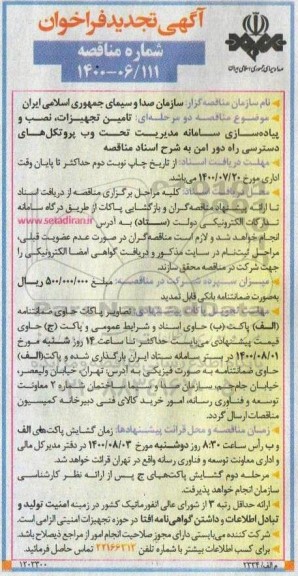 آگهی تجدید فراخوان
شماره مناقصه
۱۴۰۰-۰۶/۱۱۱
صدا و سیمای جمهوری اسلامی ایران
نام سازمان مناقصه‌گزار: سازمان صدا و سیمای جمهوری اسلامی ایران
موضوع مناقصه دو مرحله‌ای: تامین تجهیزات، نصب و
پیاده‌سازی سامانه مدیریت تحت وب پروتکل‌های
دسترسی راه دور امن به شرح اسناد مناقصه
مهلت دریافت اسناد: از تاریخ چاپ نوبت دوم حداکثر تا پایان وقت
اداری مورخ ۱۴۰۰/۰۷/۲۰ می‌باشد.
کلیه مراحل برگزاری مناقصه از دریافت اسناد
تا ارائه پیشنهاد مناقصه‌گران و بازگشایی پاکات از طریق درگاه سامانه
تدارکات الکترونیکی دولت (ستاد) به آدرس www.setadiran.ir
انجام خواهد شد و لازم است مناقصه‌گران در صورت عدم عضویت قبلی،
مراحل ثبت‌نام در سایت مذکور و دریافت گواهی امضا الکترونیکی را
جهت شرکت در مناقصه محقق سازند.
میزان سپرده شرکت در مناقصه: مبلغ ۵۰۰/۰۰۰/۰۰۰ ریال
به‌صورت ضمانتنامه بانکی قابل تمدید
تصاویر پاکات حاوی ضمانتنامه
(الف) پاکت (ب) حاوی اسناد و شرایط عمومی و پاکت (ج) حاوی
قیمت پیشنهادی می‌بایست حداکثر تا ساعت ۱۴ روز شنبه مورخ
۱۴۰۰/۰۸/۰۱ در بستر سامانه ستاد ایران بارگذاری شده و پاکت (الف)
حاوی ضمانتنامه به صورت فیزیکی به آدرس: تهران، خیابان ولیعصر،
خیابان جام جم، سازمان صدا و سیما، ساختمان شماره ۲ معاونت
توسعه و فناوری رسانه، امور خرید کالای فنی دبیرخانه کمیسیون
مناقصات ارسال گردد.
زمان مناقصه و محل قرائت پیشنهادها: زمان گشایش پاکت‌های الف
و ب رأس ساعت ۸:۳۰ روز دوشنبه مورخ ۱۴۰۰/۰۸/۰۳ در دفتر مدیرکل مالی
و اداری معاونت توسعه و فناوری رسانه واقع در تهران قرائت خواهد شد.
مرحله دوم گشایش پاکت‌های ج پس از ارائه نظر کارشناسی
سازمان انجام خواهد پذیرفت.
ارائه حداقل رتبه ۳ از شورای عالی انفورماتیک کشور در زمینه امنیت تولید و
تبادل اطلاعات و داشتن گواهی‌نامه افتا در حوزه تجهیزات امنیتی الزامی است.
شرکت کننده می‌بایستی دارای مجوز صلاحیت انجام امور از مراجع ذیصلاح باشد.
برای کسب اطلاعات بیشتر با شماره تلفن ۲۲۱۶۶۲۱۲ تماس حاصل فرمائید
م الف/۲۳۳۴
۱۲۰۲۳۰۰